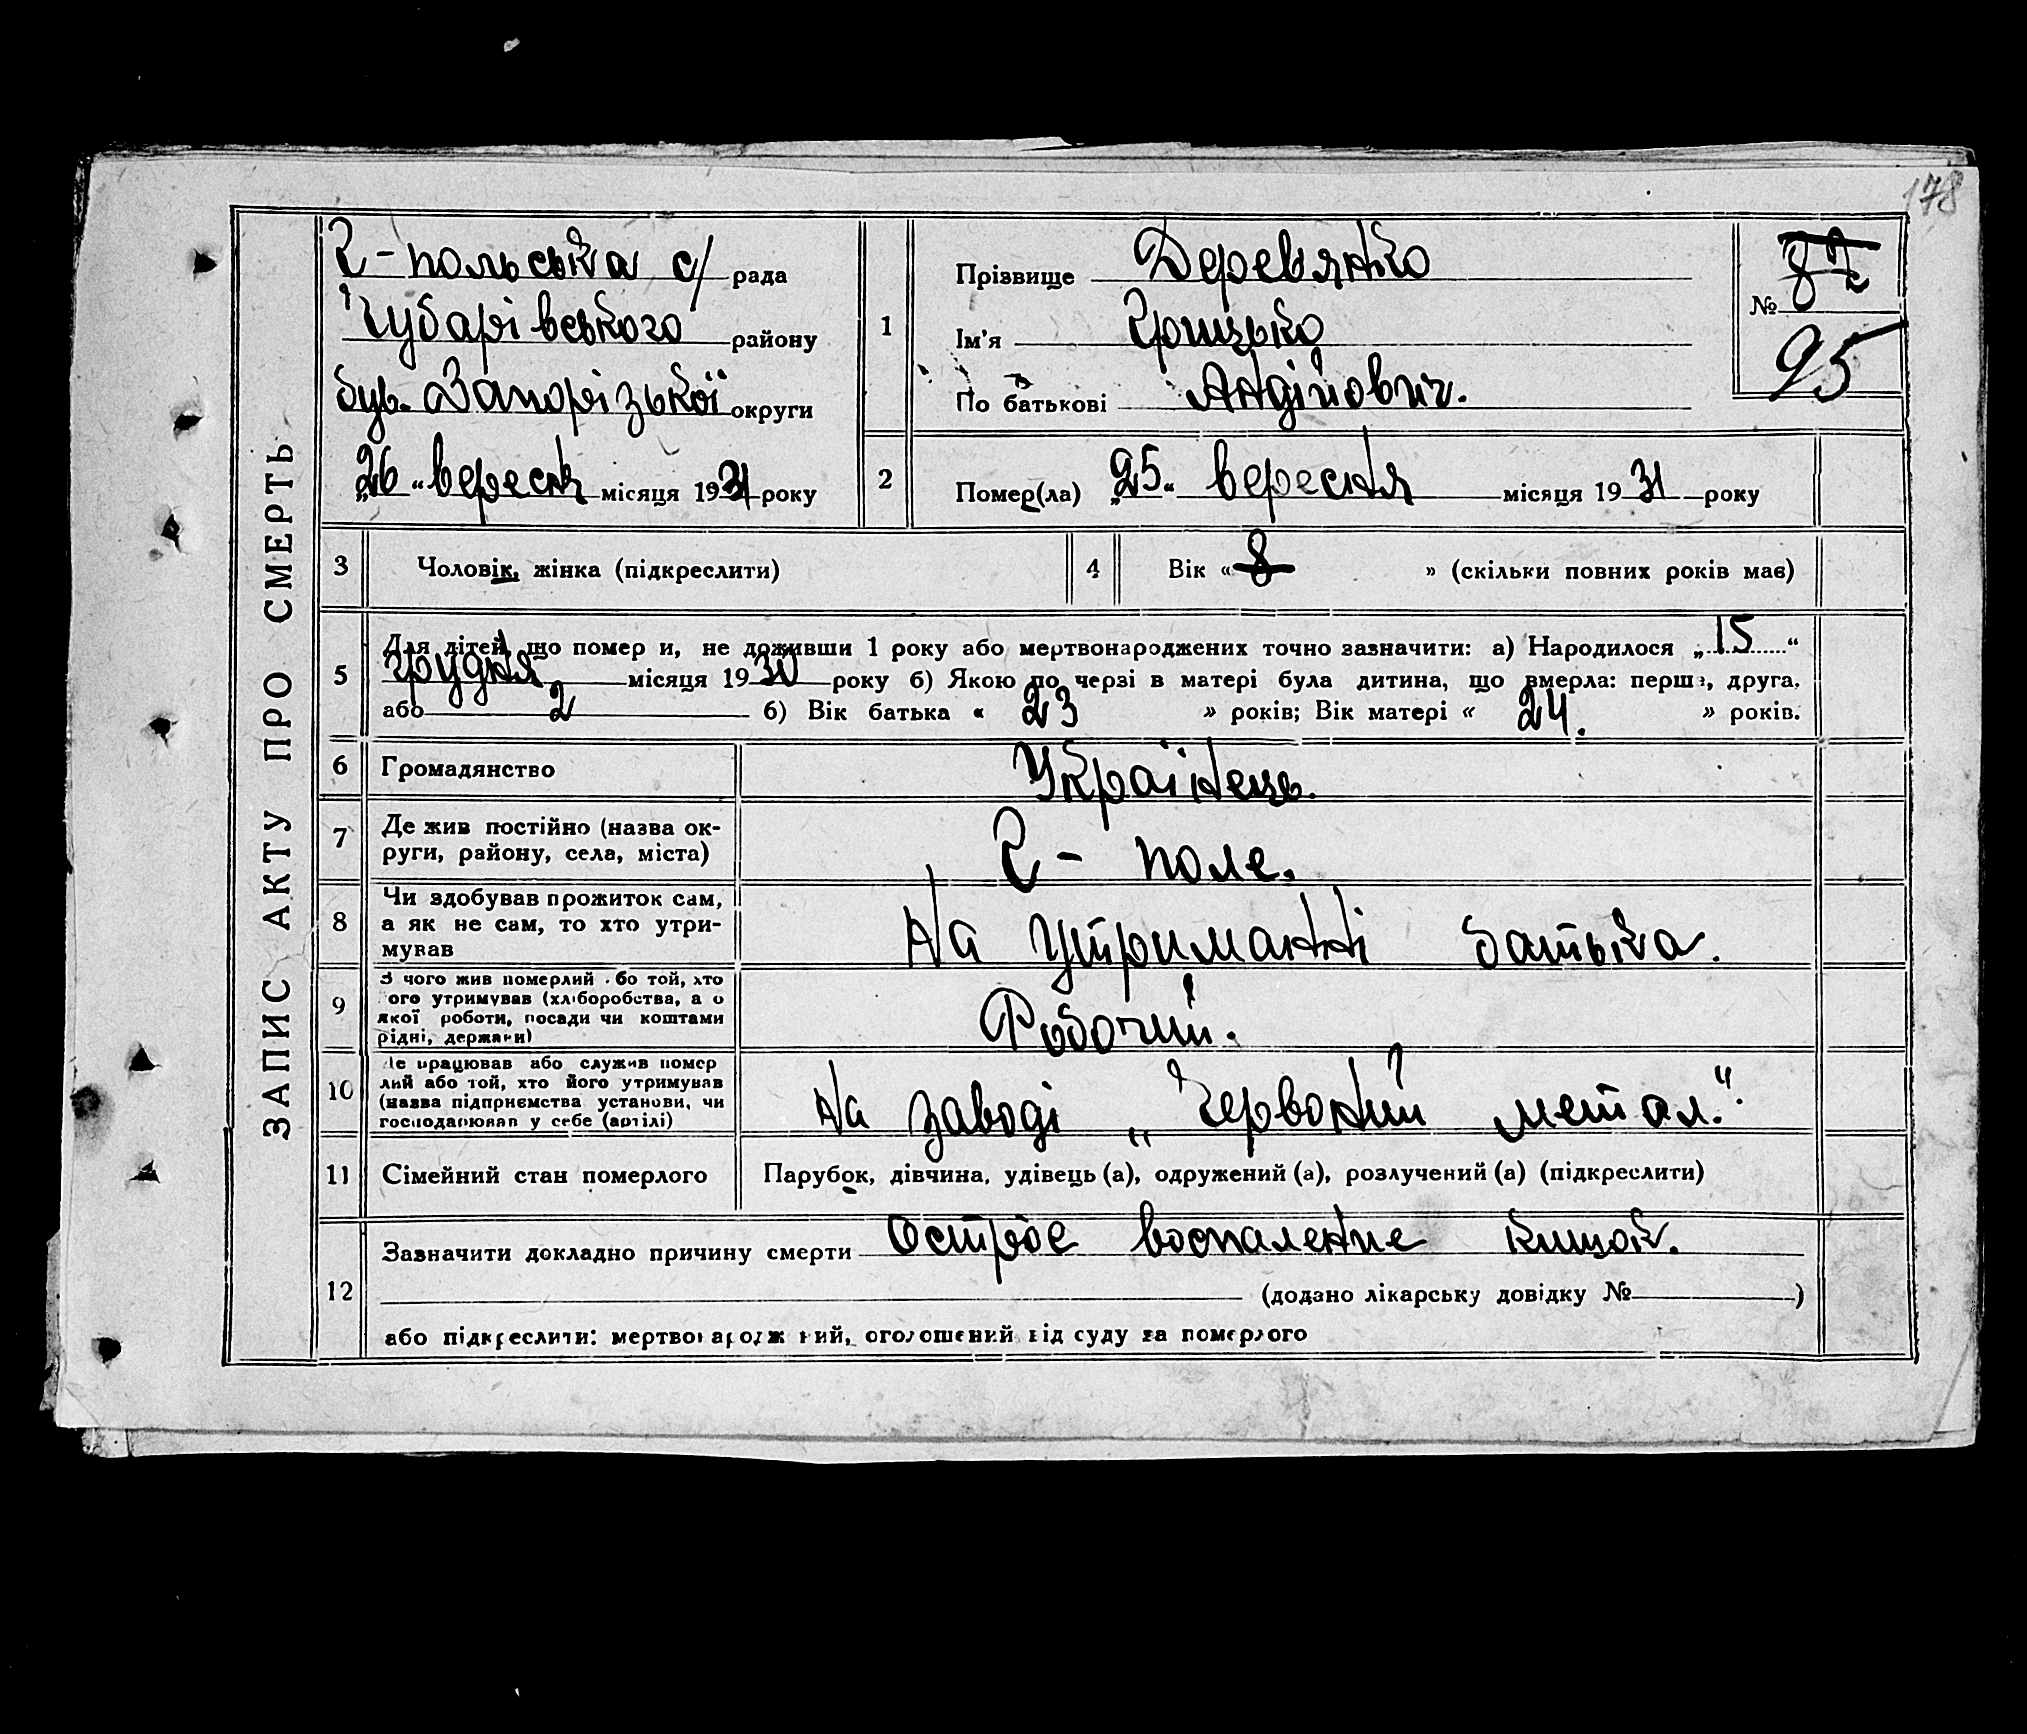 178
ЗАПИС АКТУ ПРО СМЕРТЬ
Г-польська с/ рада
Чубарівського району
був. Запорізької округи
„26“ вересня місяця 1931 року
1
Прізвище Деревянко
Ім'я Грицько
По батькові Андійович.
№ 82
95
2
Помер(ла) „25“ вересня місяця 1931 року
3 Чоловік, жінка (підкреслити)
4 Вік « 8 » (скільки повних років має)
5
Для дітей, що помер и, не доживши 1 року або мертвонароджених точно зазначити: а) Народилося „15“
грудня місяця 1930 року б) Якою по черзі в матері була дитина, що вмерла: перша, друга,
або 2 б) Вік батька « 23 » років; Вік матері « 24. » років.
6 Громадянство Українець.
7 Де жив постійно (назва ок-
руги, району, села, міста) Г- поле.
8 Чи здобував прожиток сам,
а як не сам, то хто утри-
мував На утриманні батька.
9 З чого жив померлий або той, хто
ого утримував (хліборобства, а о
якої роботи, посади чи коштами
рідні, держави) Робочий.
10 Де працював або служив помер
лий або той, хто його утримував
(назва підприємства установи, чи
господарював у себе (артілі) На заводі „Червоний метал."
11 Сімейний стан померлого Парубок, дівчина, удівець (а), одружений (а), розлучений (а) (підкреслити)
12
Зазначити докладно причину смерти Острое воспаление кишок.
(додано лікарську довідку № )
або підкреслити: мертвонароджений, оголошений від суду за померлого